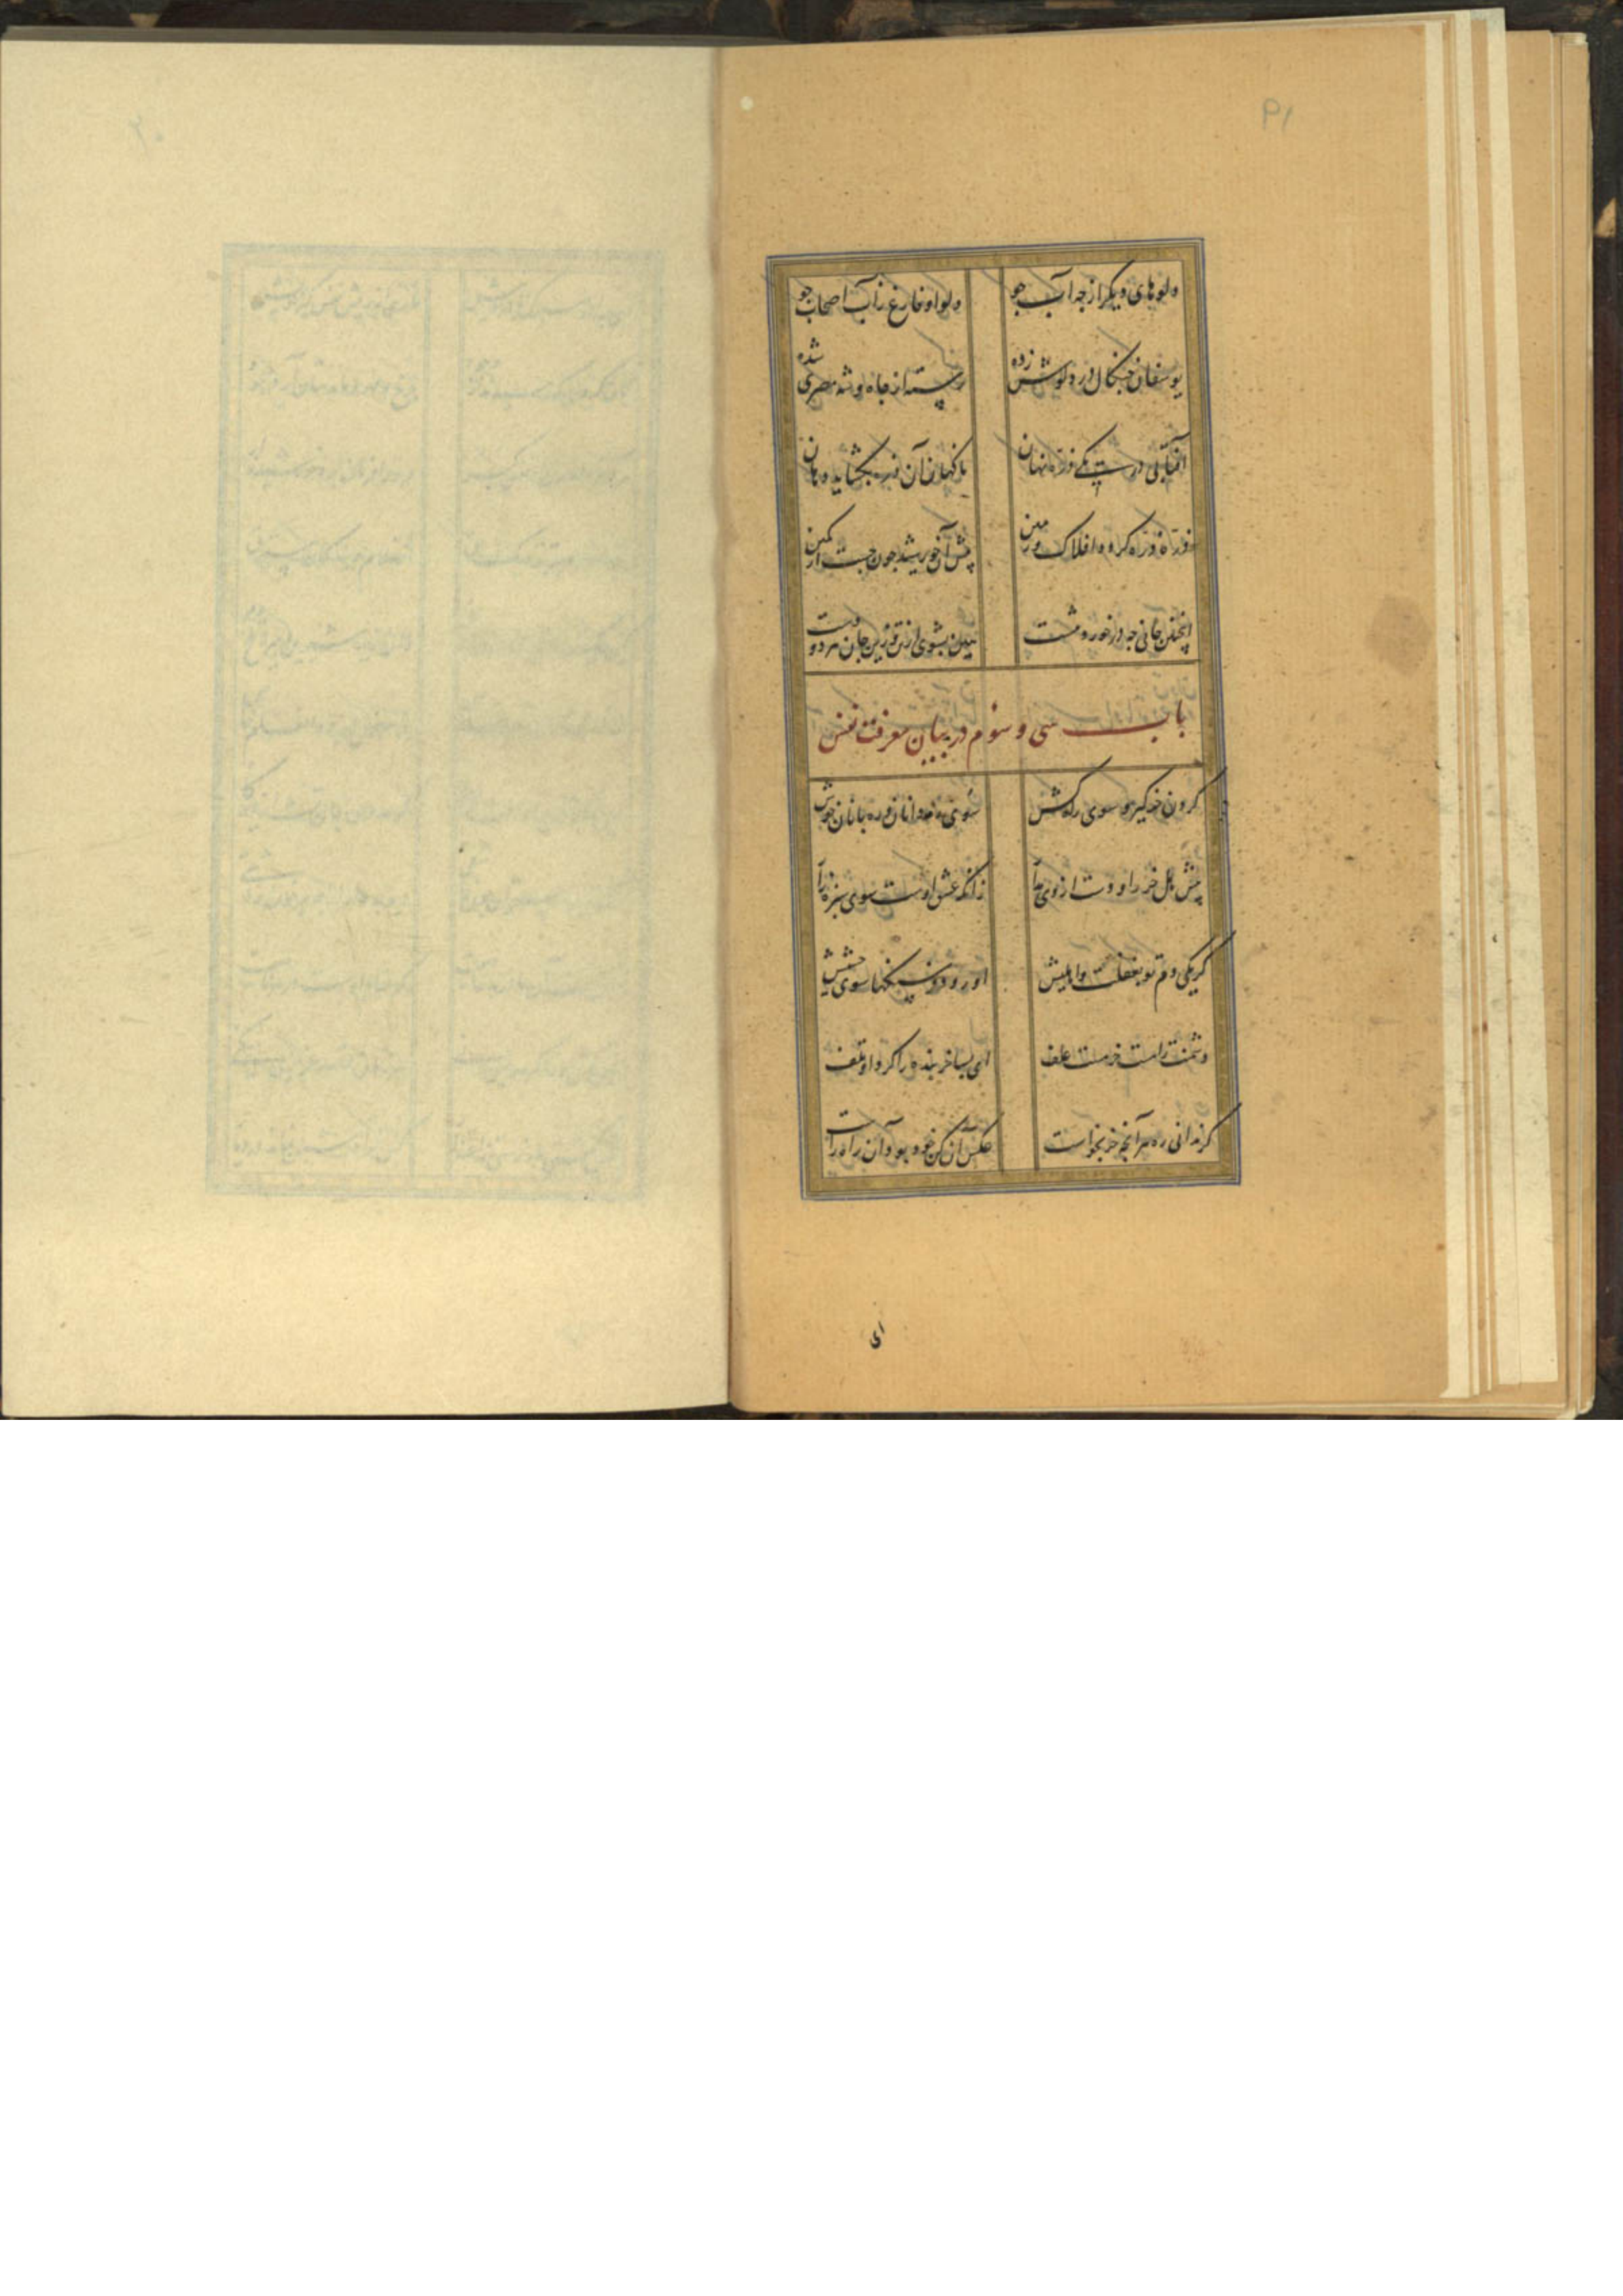 ۹۱
دلوهای دیگر از چه آب جو
دلو او فارغ ز آب اصحاب جو
یوسفان چنکال در دلوش زده
رسته از چاه و شه مصری شده
آفتابی در یکی ذره نهان
ناکهان آن ذره بکشاید دهان
ذره ذره کردد افلاک و زمین
پیش آن خورشید چون جست از کمین
اینچنین جانی چه در خورد تنست
هین بشوی ای تن ازین جان هر دو دست
باب سی و سوم در بیان معرفت نفس
کردن خر کیر و سوی راه کش
سوی ره دانان و ره بانان خوش
هین مهل خر را و دست از وی مدار
زانکه عشق اوست سوی سبزه زار
کر یکی دم تو بغفلت واهلیش
او رود فرسنکها سوی حشیش
دشمن راهست خر مست علف
ای بسا خربنده را کرد او تلف
کر ندانی ره هر آنچه خر بخواست
عکس آن کن خود بود آن راه راست
ای